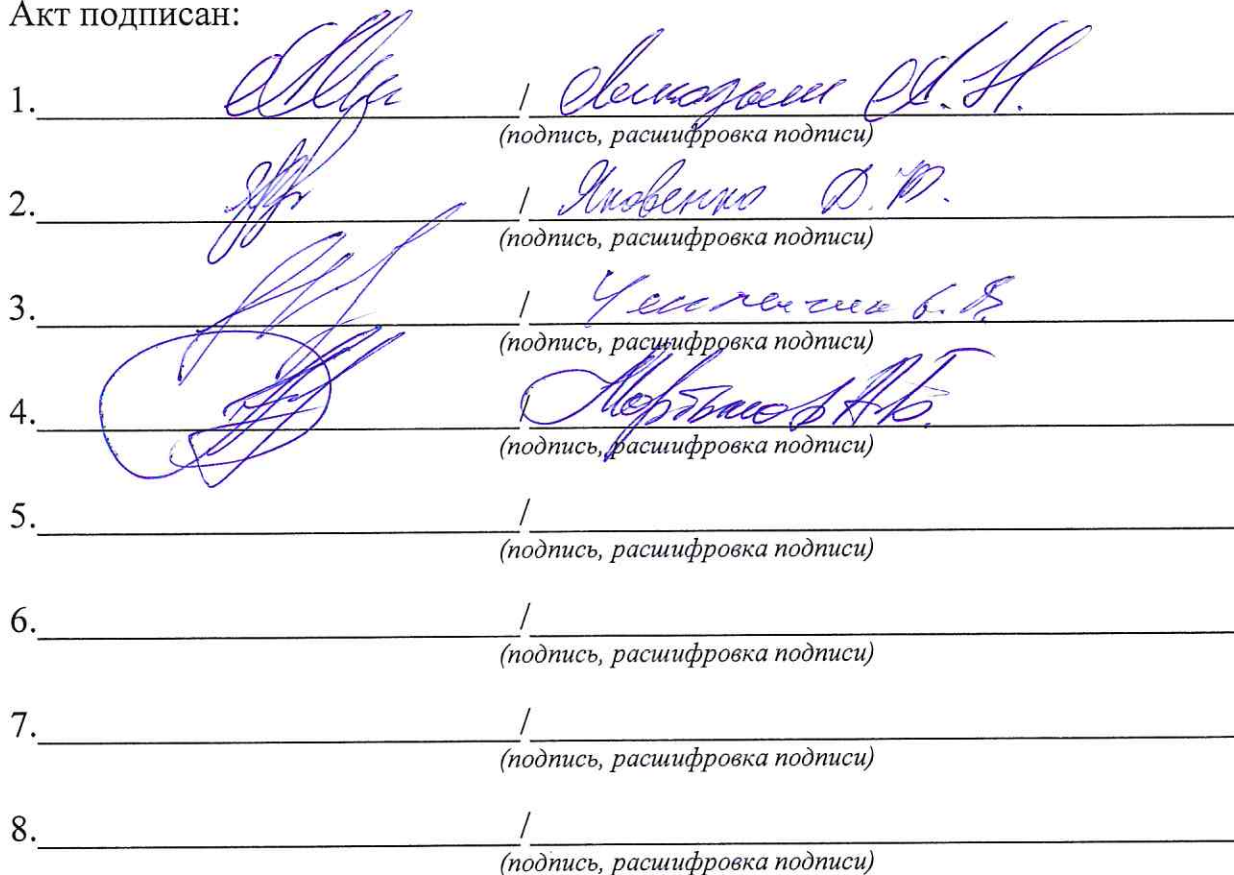 Акт подписан:
1. / А. Н.
(подпись, расшифровка подписи)
2. / Яковенко Д. Ю.
(подпись, расшифровка подписи)
3. /
(подпись, расшифровка подписи)
4. / Мартынов
(подпись, расшифровка подписи)
5. /
(подпись, расшифровка подписи)
6. /
(подпись, расшифровка подписи)
7. /
(подпись, расшифровка подписи)
8. /
(подпись, расшифровка подписи)